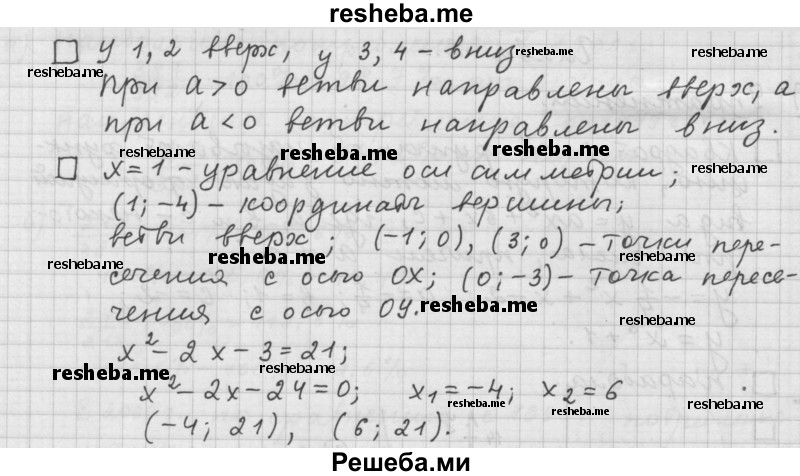 resheba.me
□ У 1, 2 вверх, у 3, 4 – вниз. resheba.me resheba.me
resheba.me
При a > 0 ветви направлены вверх, а
при a < 0 ветви направлены вниз.
resheba.me resheba.me resheba.me
□ x = 1 – уравнение оси симметрии;
(1; –4) – координаты вершины;
ветви вверх; (–1; 0), (3; 0) – точки пере-
resheba.me resheba.me resheba.me
сечения с осью OX; (0; –3) – точка пересе-
чения с осью OY. resheba.me resheba.me
x² – 2x – 3 = 21;
resheba.me resheba.me
x² – 2x – 24 = 0; x₁ = –4; x₂ = 6
resheba.me resheba.me resheba.me
(–4; 21), (6; 21).
Решеба.ми